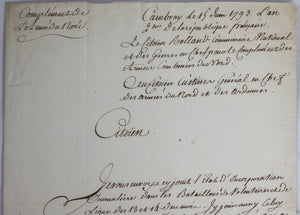 Complément de
L'armée du Nord
Cambray le 15 Juin 1793 L'an
2.eme de la république française
Le Citoyen Rolland Commissaire National
et des Guerres en Chef pour le Complément des
Armées Commissaire du Nord.
Au Citoyen Custine Général en Chef
des armées du Nord et des ardennes.
Citoien
Je vous envoye cy joint l'État d'Incorporation
Sommaire dans les Bataillons de Volontaires et de
Ligne des 13 et 14 du mois. J'y joins celuy